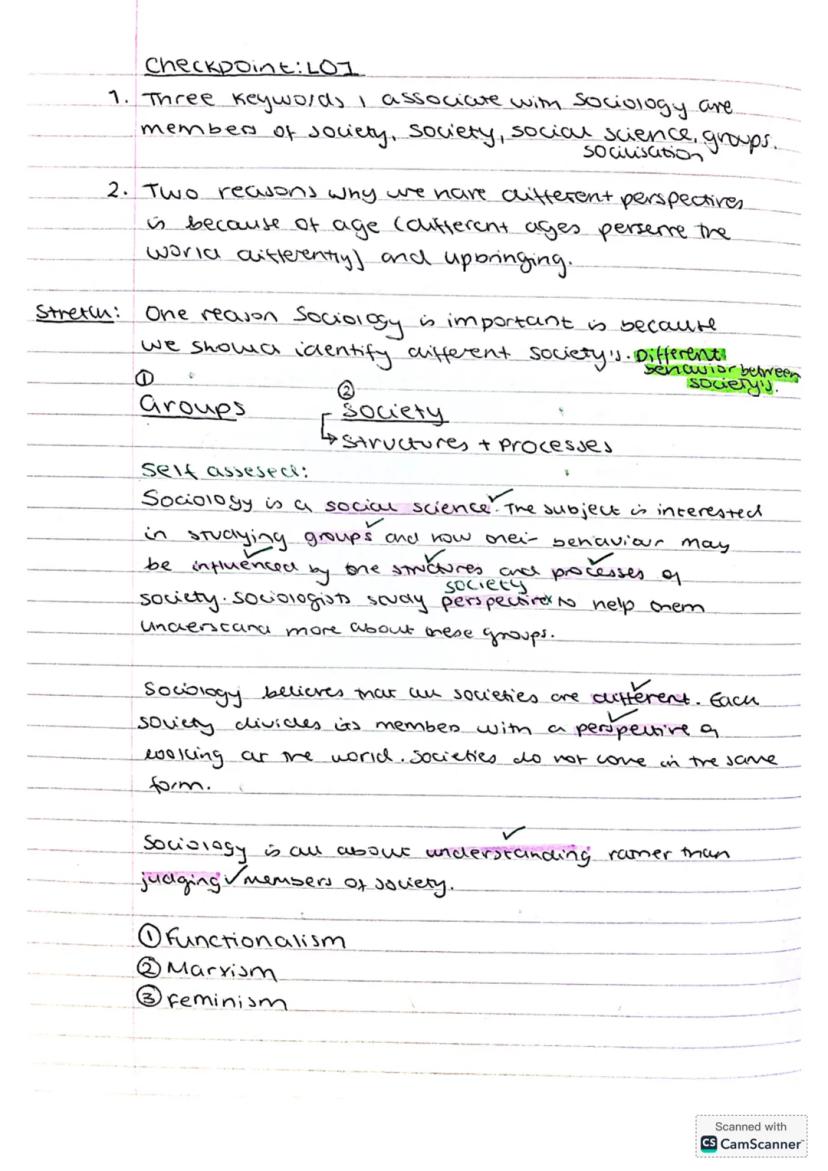 Checkpoint: LO1
1. Three keywords I associate with Sociology are
members of society, society, social science, groups.
socilisation
2. Two reasons why we have different perspectives
is because of age (different ages perserve the
world differently) and upbringing.
Stretch: One reason Sociology is important is because
we should identify different society's. Different
behavior between
society's.
① ②
Groups Society
↳ structures + processes
Self assesed:
Sociology is a social science. The subject is interested
in studying groups and how their behaviour may
be influenced by the structures and processes of
society
society. Sociologists study perspectives to help them
understand more about these groups.
Sociology believes that all societies are different. Each
society divides its member with a perspective of
looking at the world. Societies do not come in the same
form.
Sociology is all about understanding rather than
judging members of society.
① Functionalism
② Marxism
③ feminism
Scanned with
CS CamScanner